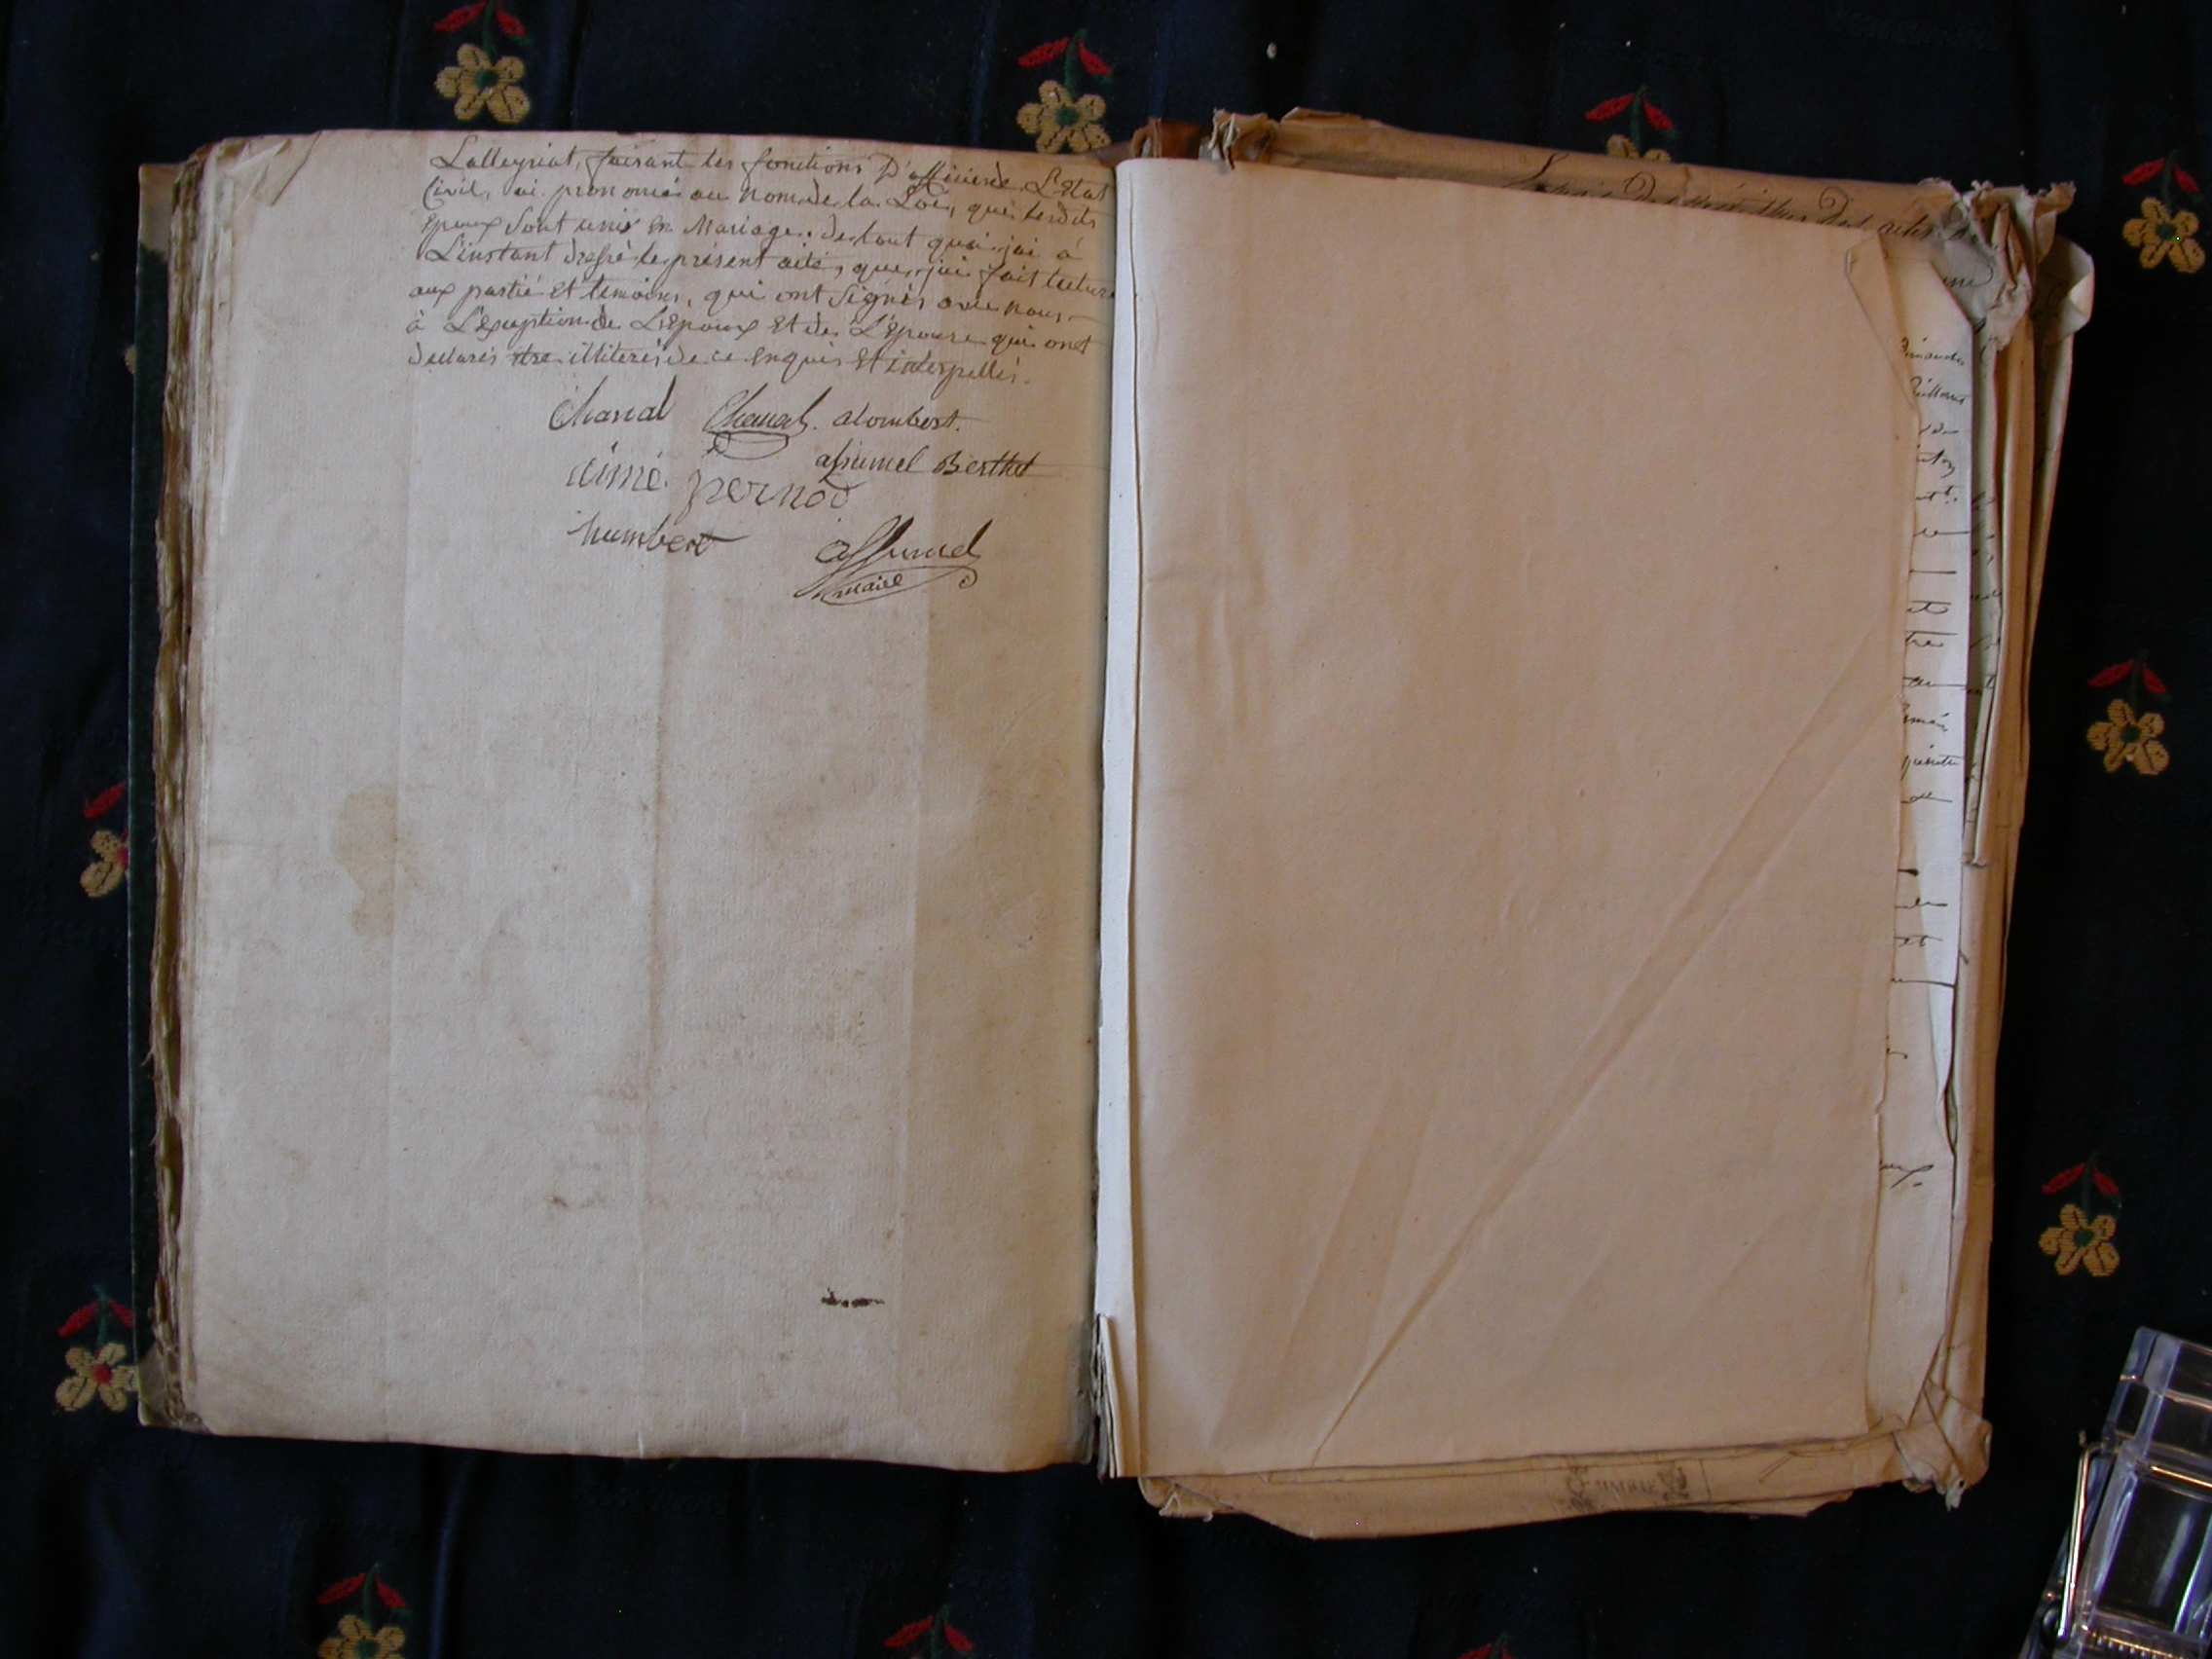 Lalleyriat, faisant les fonctions D'officier de L'Etat
Civil, ai prononcé au nom de la Loi, que lesdits
Epoux sont unis en Mariage. de tout quoi j'ai à
L'instant dressé le présent acte, que j'ai fait lecture
aux partié et témoins, qui ont signés avec nous
à L'exception de L'Epoux et de L'Epouse qui ont
declarés être illiterés de ce enquis et interpellés.
Chanal Chanal. alombert.
aimé. pernod
affrumel Berthet
humbert
maire
et
tre
et
MAIRIE